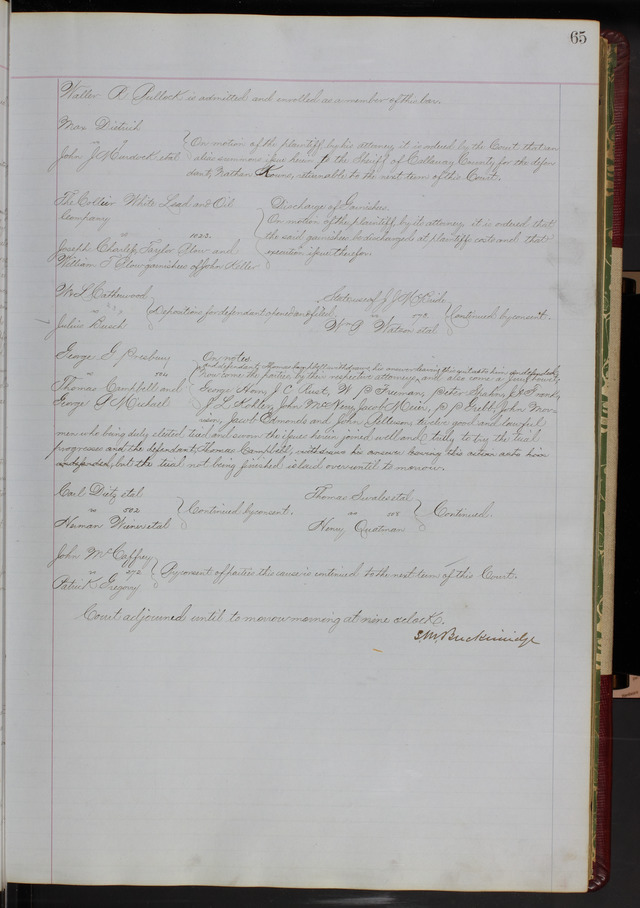 65
Walter B. Bullock is admitted and enrolled as a member of this bar.
Max Dietrich
" 7
John J. Murdock etal
On motion of the plaintiff by his attorney it is ordered by the Court that an
alias summons issue herein to the Sheriff of Callaway County, for the defen-
dant, Nathan Kouns, returnable to the next term of this Court.
The Collier White Lead and Oil
Company
" 1022
Joseph Charless, Taylor Blow and
William T Blow garnishees of John Keller
Discharge of Garnishee
On motion of the plaintiff by its attorney it is ordered that
the said garnishee be discharged at plaintiffs costs and that
execution issue therefor.
Wm L Catherwood
"
Julius Busch
Depositions for defendant opened and filed
State use of J J McBride
" 172
Wm G Watson etal
Continued by consent.
George E Presbury
" 524
Thomas Campbell and
George A Michael
On notes
Now come the parties by their respective attorneys, and also come a jury towit,
George Horn, J C Rust, W B Freeman, Peter J J Frank,
J L Kohler, John McNew, Jacob Meier, B B Grubb, John Mor-
rison, Jacob Edmonds and John Patterson, twelve good and lawful
men who being duly elected tried and sworn the issue herein joined well and truly to try the trial
progresses and the defendant, Thomas Campbell, withdraws his answer leaving this action as to him
undefended, but the trial not being finished is laid over until to morrow.
Carl Dietz etal
" 502
Herman Wiener etal
Continued by consent.
Thomas Swales etal
" 158
Henry Quatman
Continued.
John McCaffrey
" 272
Patrick Gregory
By consent of parties this cause is continued to the next term of this Court.
Court adjourned until to morrow morning at nine oclock.
S.M. Breckinridge